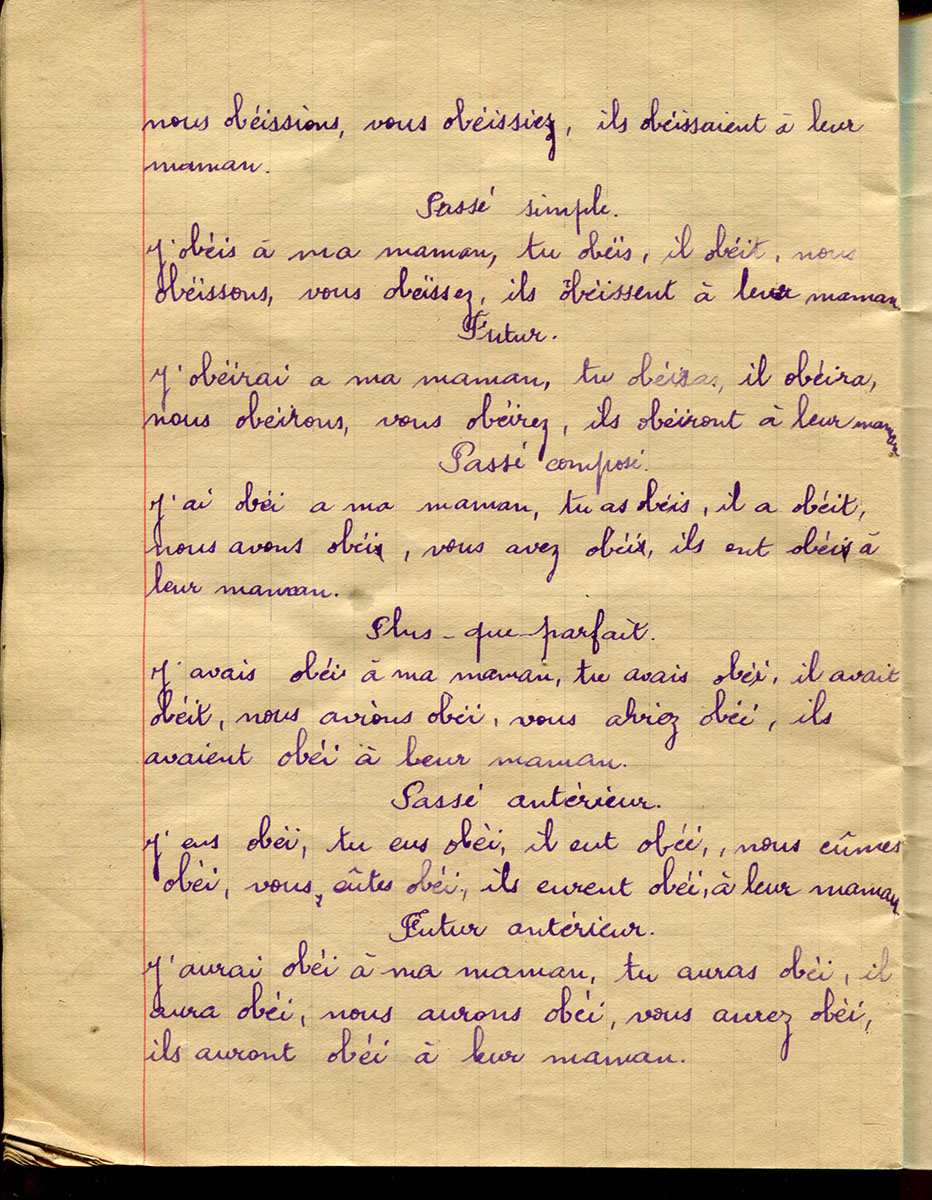 nous obéissions, vous obéissiez, ils obéissaient à leur
maman.
Passé simple.
J'obéis à ma maman, tu obéis, il obéit, nous
obéissons, vous obéissez, ils obéissent à leur maman
Futur.
J'obéirai a ma maman, tu obéiras, il obéira,
nous obéirons, vous obéirez, ils obéiront à leur maman
Passé composé.
J'ai obéi a ma maman, tu as obéis, il a obéit,
nous avons obéis, vous avez obéis, ils ont obéis à
leur maman.
Plus-que-parfait.
J'avais obéi à ma maman, tu avais obéi, il avait
obéit, nous avions obéi, vous aviez obéi, ils
avaient obéi à leur maman.
Passé antérieur.
J'eus obéi, tu eus obéi, il eut obéi, nous eûmes
obéi, vous eûtes obéi, ils eurent obéi, à leur maman
Futur antérieur.
J'aurai obéi à ma maman, tu auras obéi, il
aura obéi, nous aurons obéi, vous aurez obéi,
ils auront obéi à leur maman.